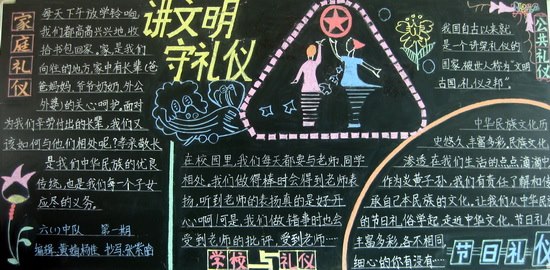 讲文明
守礼仪
家庭礼仪
每天下午放学铃响,
我们都高高兴兴地收
拾书包回家,家是我们
向往的地方,家中有长辈(爸
爸妈妈,爷爷奶奶,外公
外婆)的关心呵护,面对
为我们辛劳付出的长辈,我们又
该如何与他们相处呢?孝亲敬长
是我们中华民族的优良
传统,也是我们每一个子女
应尽的义务。
六(1)中队 第一期
公共礼仪
我国自古以来就
是一个讲究礼仪的
国家,被世人称为“文明
古国,礼仪之邦”。
在校园里,我们每天都要与老师,同学
相处。我们做得棒时会得到老师表
扬,听到老师的表扬真的是好开
心啊!可是,我们做错事时也会
受到老师的批评,受到老师……
学校与礼仪
中华民族文化历
史悠久,丰富多彩,民族文化
渗透在我们生活的点点滴滴中
作为炎黄子孙,我们有责任了解和传
承自己本民族的文化。让我们从中华民族
的节日礼俗学起,走近中华文化。节日礼
丰富多彩,各不相同,
细心的你有没有……
节日礼仪